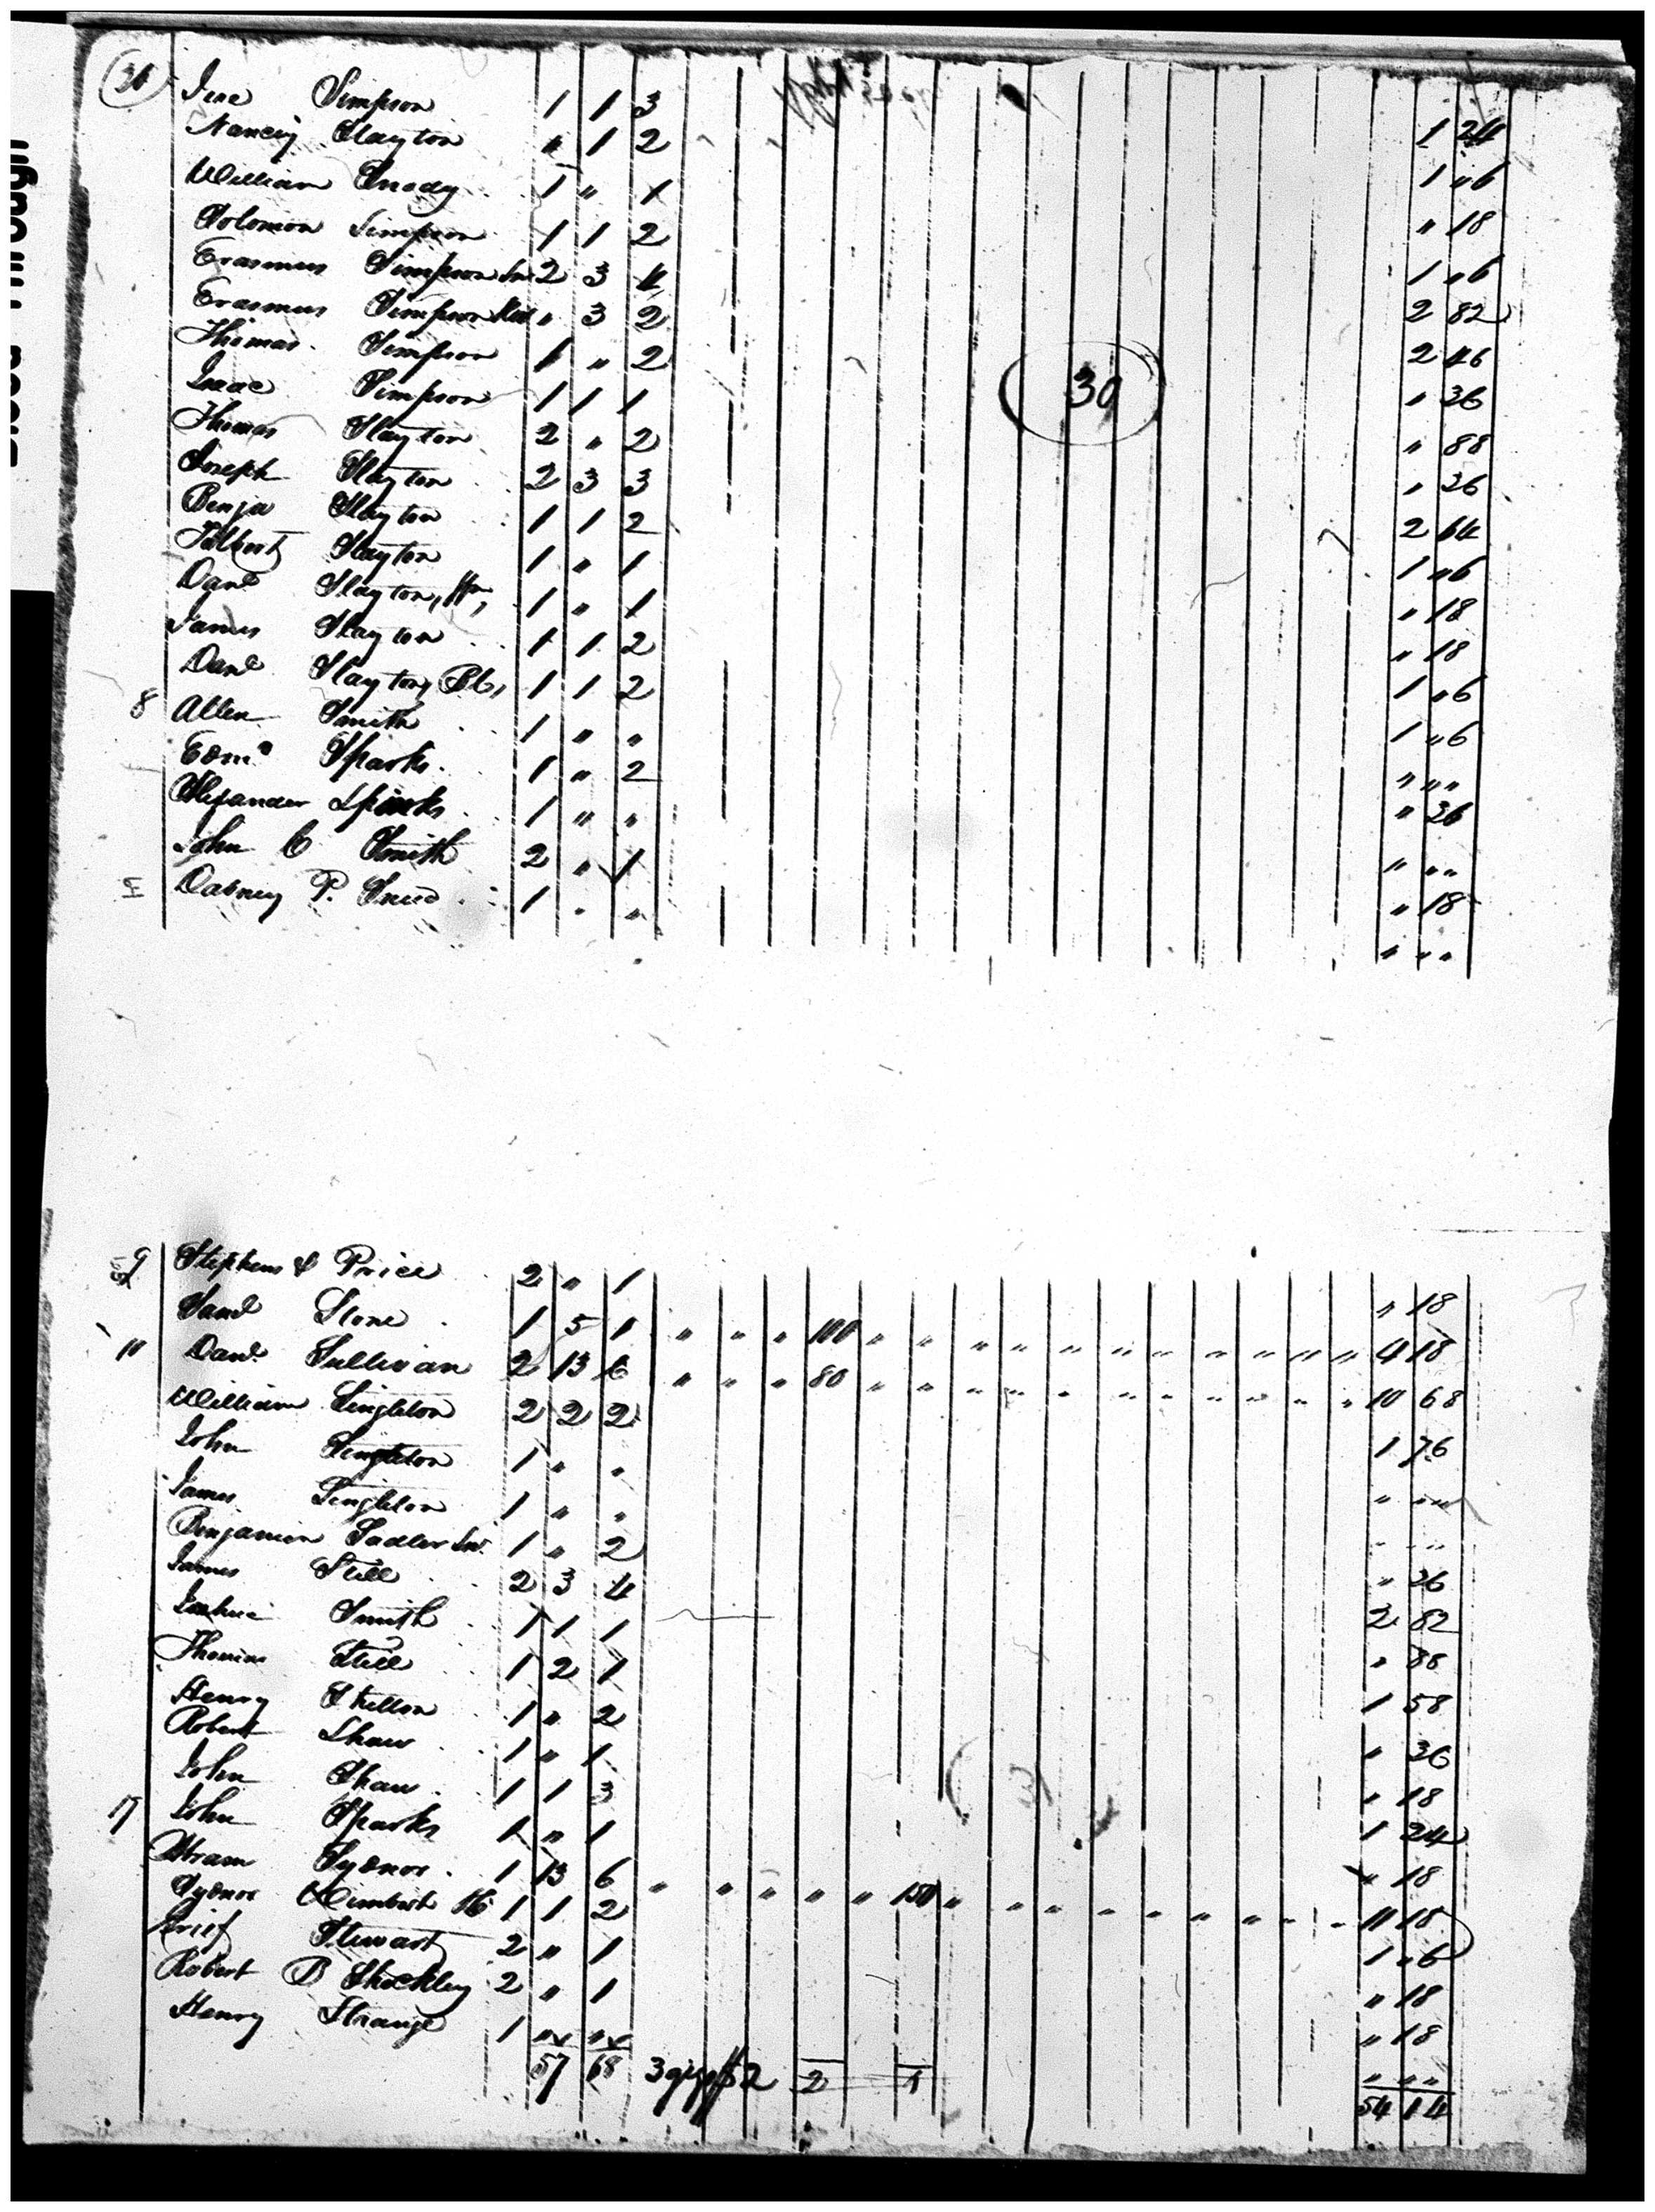 30
30
Simpson 1 1 3 1 24
Nancy Slayton " 1 2 1 "6
William Snody 1 " 1 " 18
Solomon Simpson 1 1 2 1 "6
Erasmus Simpson Sen 2 3 4 2 82
Erasmus Simpson " 3 2 2 46
Thomas Simpson 1 " 2 " 36
Isaac Simpson 1 1 1 " 88
Thomas Slayton 2 " 2 " 36
Joseph Slayton 2 3 3 2 64
Benja Slayton 1 1 2 1 "6
Talbert Slayton 1 " 1 " 18
Danl Slayton, Wm, 1 " 1 " 18
James Slayton 1 1 2 1 "6
Danl Slayton, Bl, 1 1 2 1 "6
8 Allen Smith 1 " " " " "
Edmd Sparks 1 " 2 " 36
Alexander Sparks 1 " " " " "
John C Smith 2 " 1 " 18
Dabney P. 1 " " " " "
9 Stephens & Price 2 " 1 " 18
Saml Stone 1 5 1 " " " 100 " " " " " " " " " " " 4 18
11 Danl Sullivan 2 13 6 " " " 80 " " " " " " " " " " " 10 68
William Singleton 2 2 2 1 76
John Singleton 1 " " " " "
James Singleton 1 " " " " "
Benjamin Sadler Sr. 1 " 2 " 36
James Still 2 3 4 2 82
Smith 1 1 1 " 88
Thomas Still 1 2 1 1 58
Henry Shelton 1 " 2 " 36
Robert Shaw 1 " 1 " 18
John Shaw 1 1 3 1 24
17 John Sparks 1 " 1 " 18
Hiram Sydnor 1 13 6 " " " " " 150 " " " " " " " " " 11 18
Sydnor 1 1 2 1 "6
Stewart 2 " 1 " 18
Robert B Shockley 2 " 1 " 18
Henry Strange 1 " " " " "
57 68 3 gigs $ 2 2 1 54 14